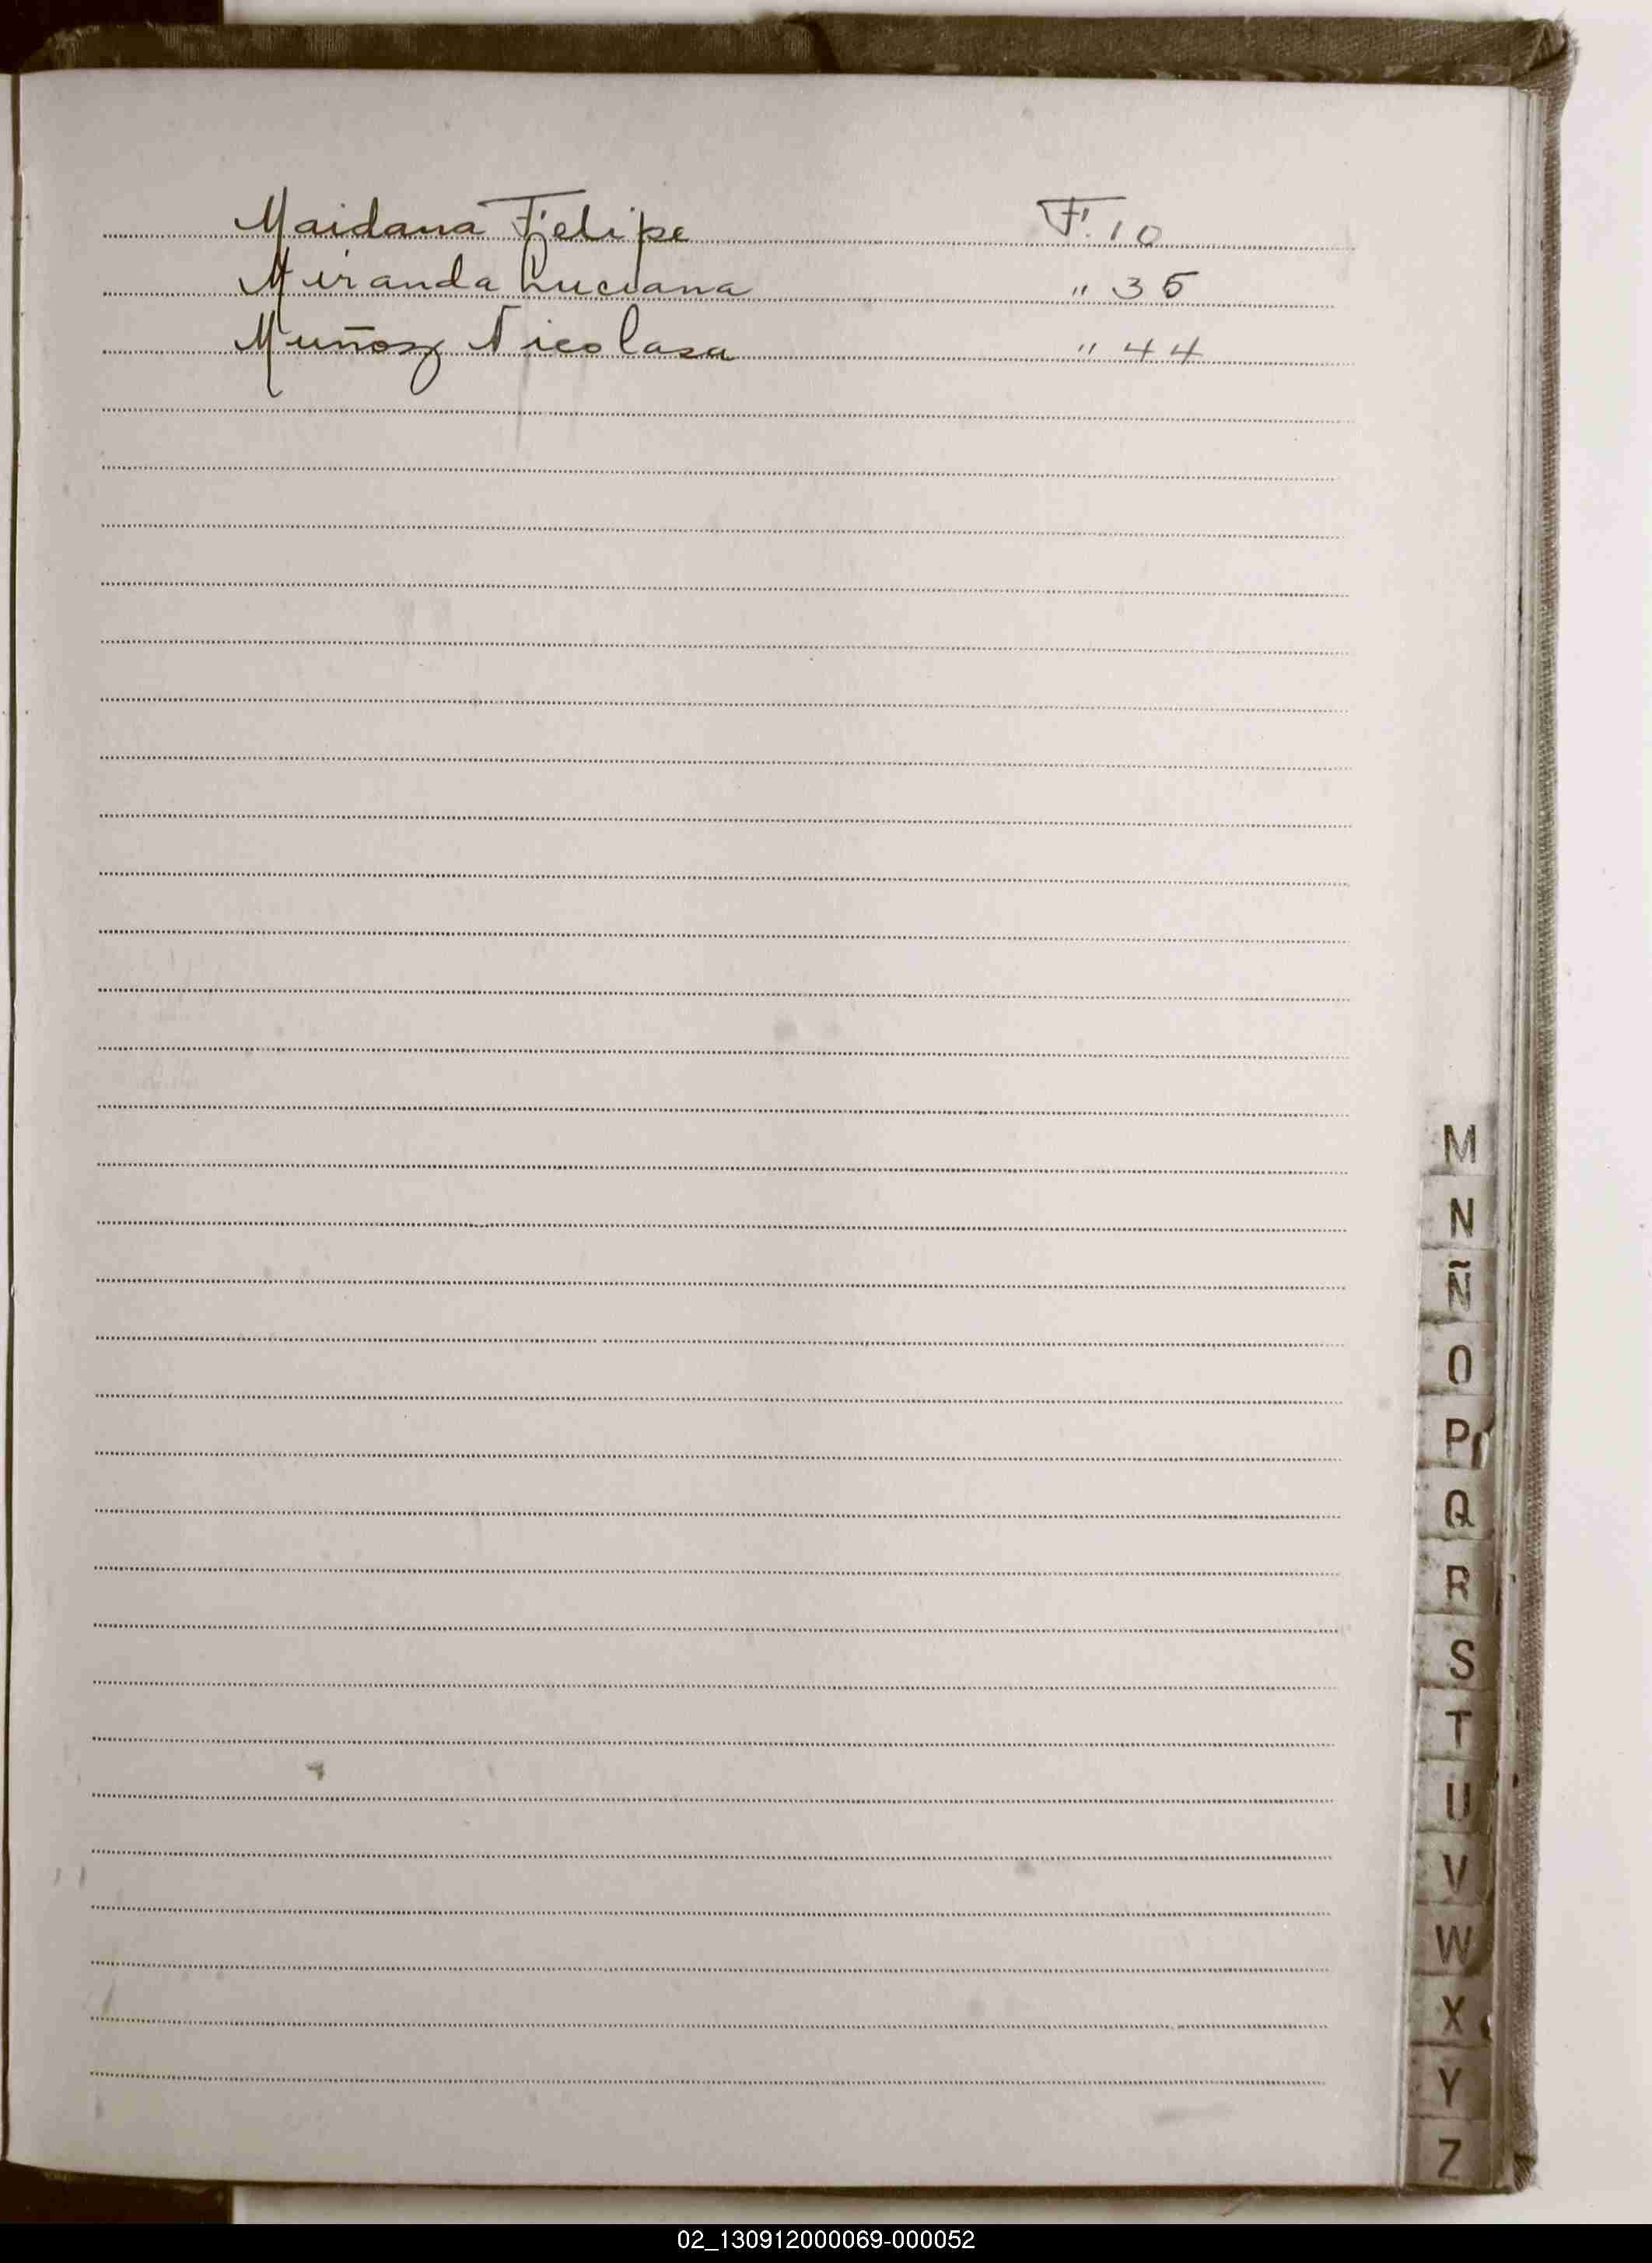 Maidana Felipe F. 10
Miranda Luciana " 35
Muñoz Nicolasa " 44
M
N
Ñ
O
P
Q
R
S
T
U
V
W
X
Y
Z
02_130912000069-000052